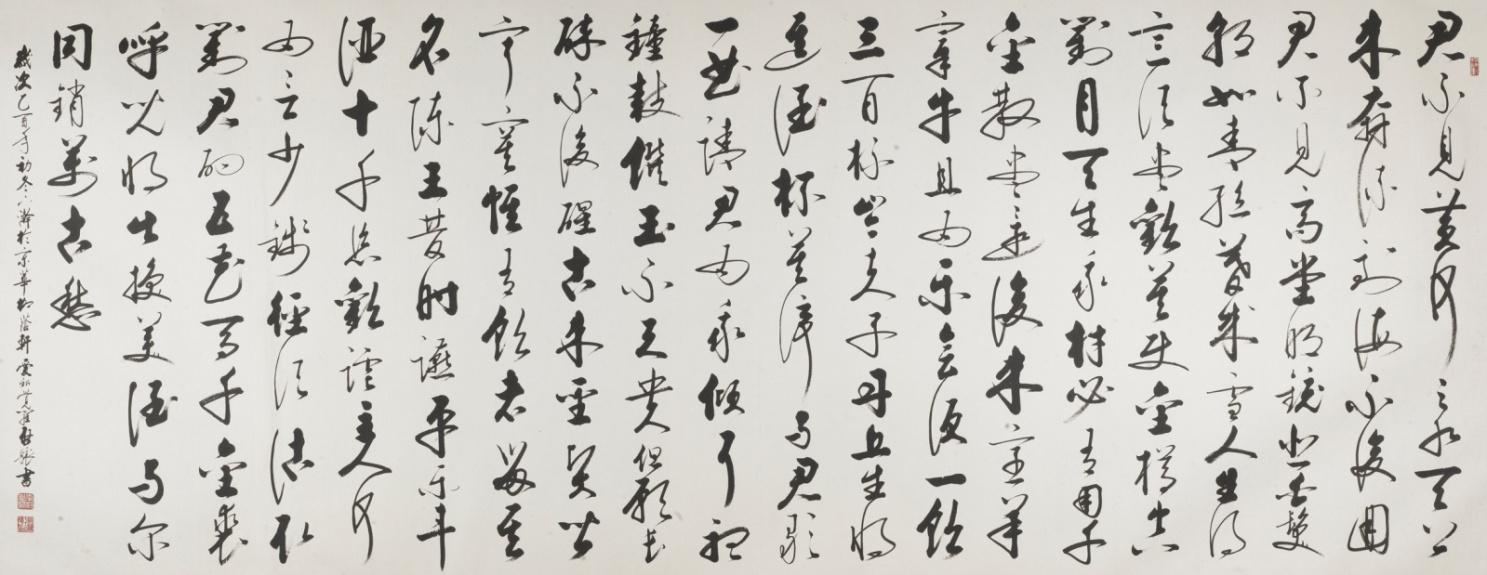 君不見黃河之水天上
來奔流到海不復回
君不見高堂明鏡悲白髮
朝如青絲暮成雪人生得
意須盡歡莫使金樽空
對月天生我材必有用千
金散盡還復來烹羊
宰牛且為樂會須一飲
三百杯岑夫子丹丘生將
進酒杯莫停與君歌
一曲請君為我傾耳聽
鐘鼓饌玉不足貴但願長
醉不復醒古來聖賢皆
寂寞惟有飲者留其
名陳王昔時讌平樂斗
酒十千恣歡謔主人何
為言少錢徑須沽取
對君酌五花馬千金裘
呼兒將出換美酒與爾
同銷萬古愁
歲次乙酉年初冬於京華柳蔭軒愛新覺羅啟驤書